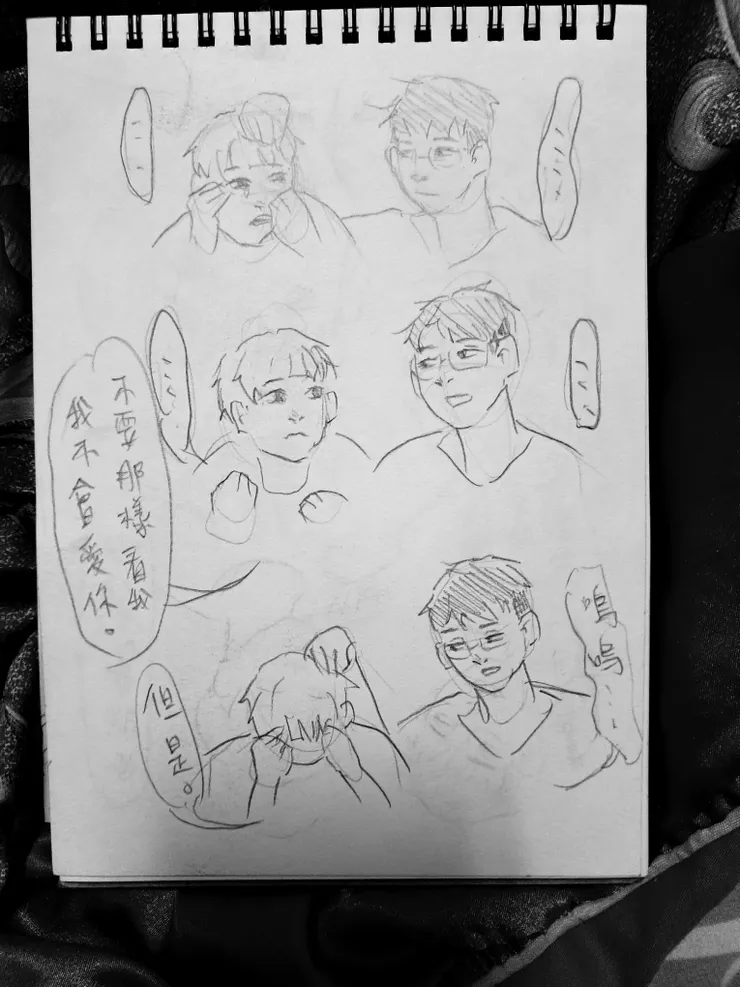 ……
……
……
……
不要那樣看我
我不會愛你。
但是。
嗚嗚…